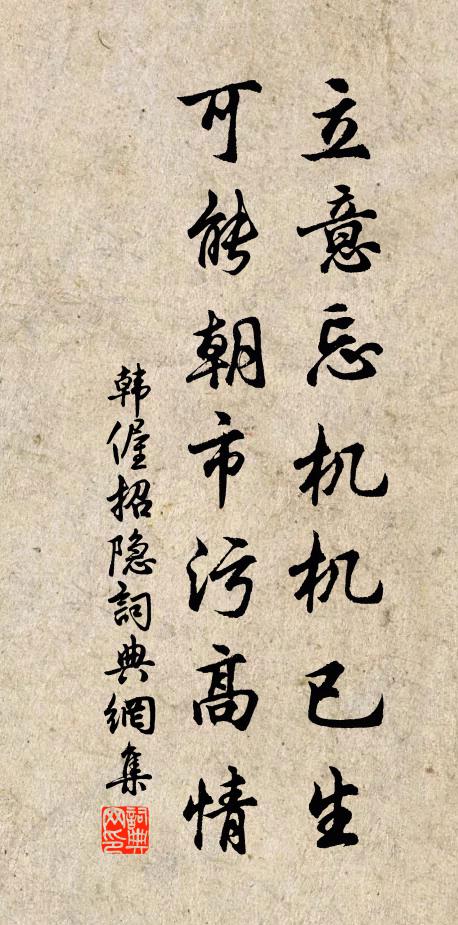 立意忘机机已生
可能朝市污高情
韩偓招隐詞典網集
詞典网印